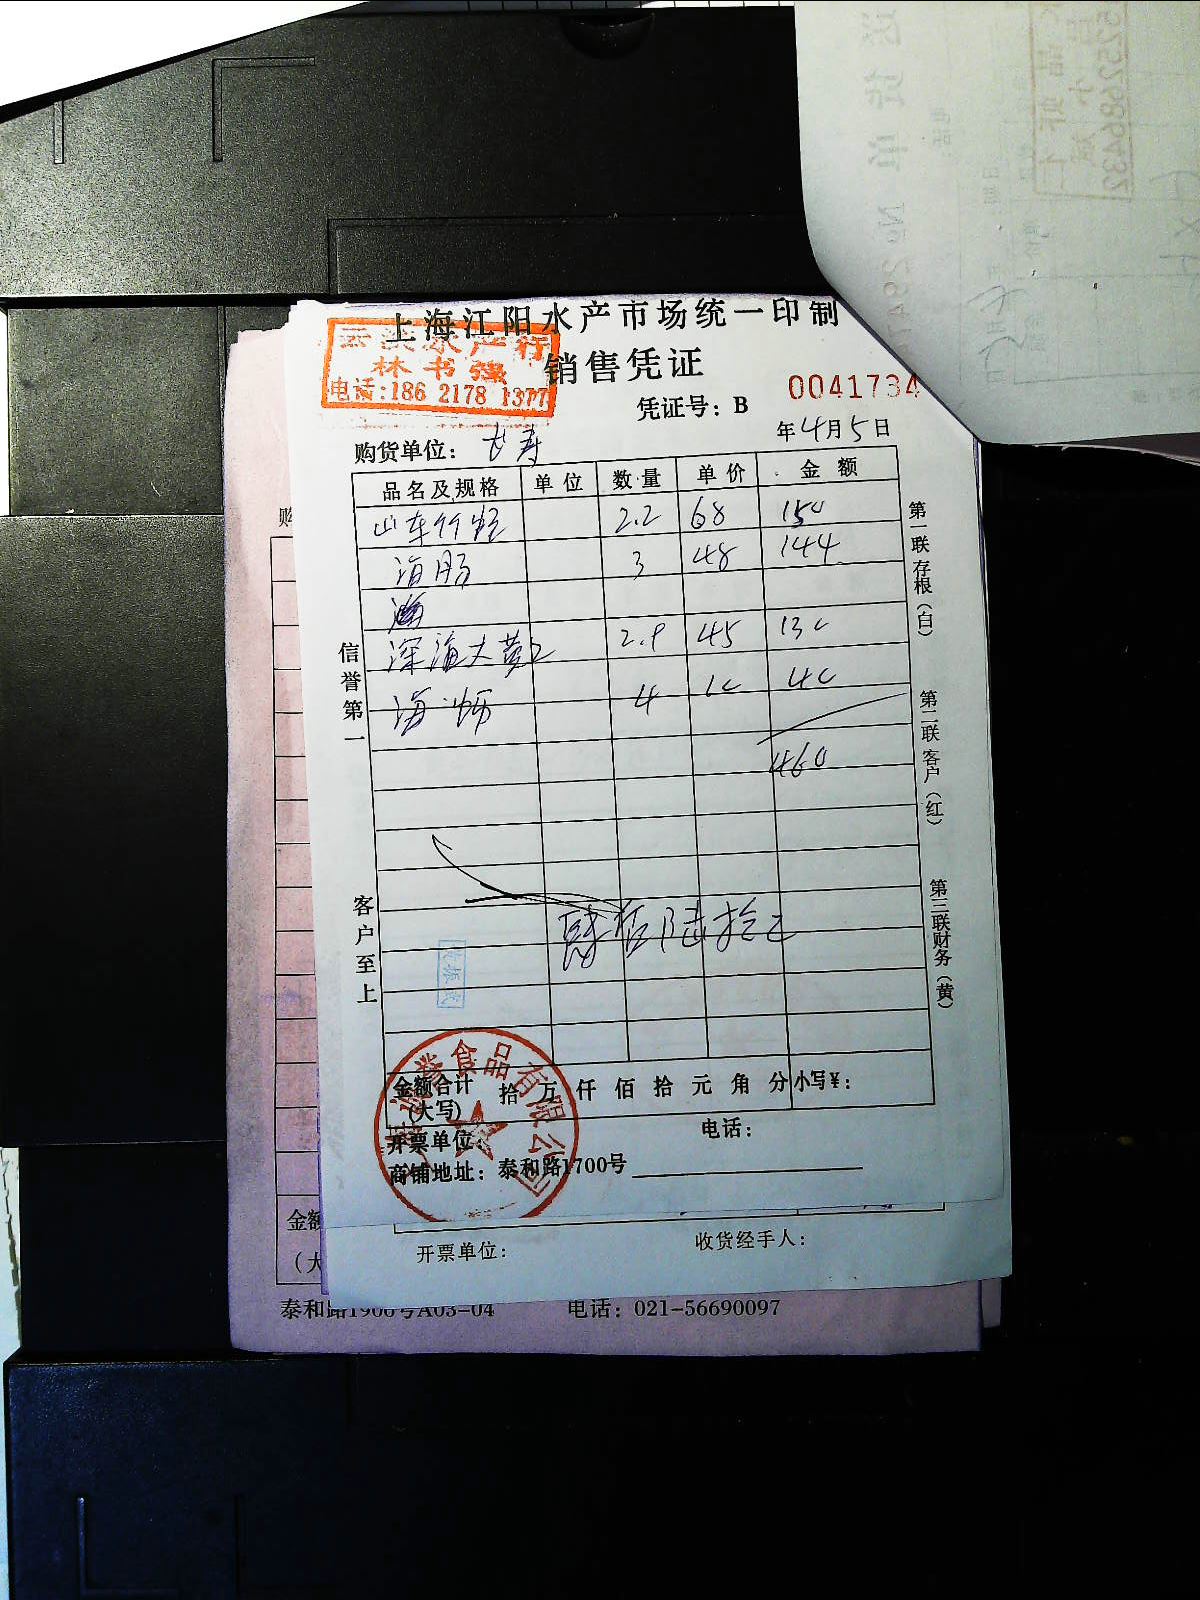 上海江阳水产市场统一印制
水产行
林书强
电话:186 2178 1377
销售凭证
凭证号: B 0041734
购货单位: 长寿
年4月5日
品名及规格 单位 数量 单价 金额
山东竹蛏 2.2 68 150
海肠 3 48 144
深海大黄 2.9 45 130
海蛎 4 10 40
460
肆佰陆拾元
信誉第一
客户至上
第一联存根(白)
第二联客户(红)
第三联财务(黄)
食品有限公司
金额合计
(大写)
拾 万 仟 佰 拾 元 角 分 小写¥:
开票单位:
电话:
商铺地址: 泰和路1700号
开票单位:
收货经手人:
购
金额
(大
泰和路1900号A03-04 电话: 021-56690097